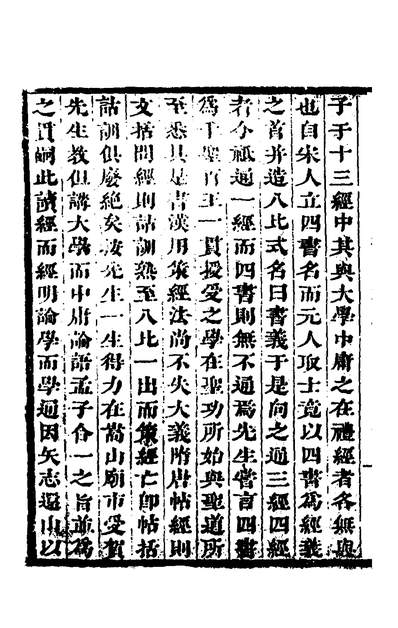 子于十三經中其與大學中庸之在禮經者各無與
也自宋人立四書名而元人取士竟以四書爲經義
之首并造八比式名曰書義于是向之通三經四經
者今祗通一經而四書則無不通焉先生嘗言四書
爲千聖百王一貫授受之學在聖功所始與聖道所
至悉具是書漢用策經法尚不失大義隋唐帖經則
文括問經則詁訓熟至八比一出而策經亡卽帖括
詁訓俱廢絕矣故先生一生得力在嵩山廟市受賀
先生教但講大學而中庸論語孟子合一之旨並爲
之貫嗣此讀經而經明論學而學通因矢志還山以